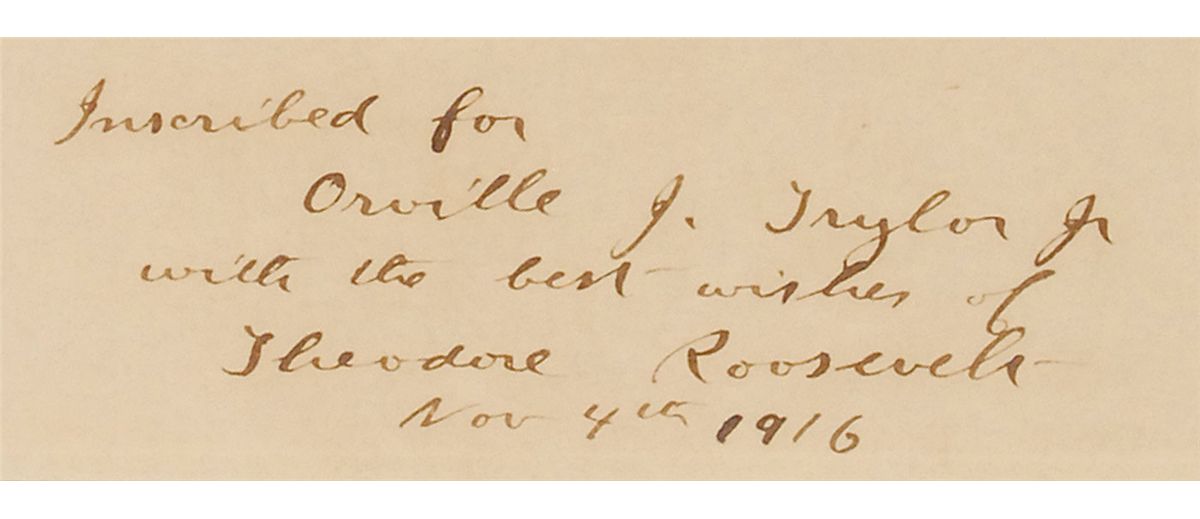 Inscribed for
Orville J. Trylor Jr
with the best wishes of
Theodore Roosevelt
Nov 4th 1916